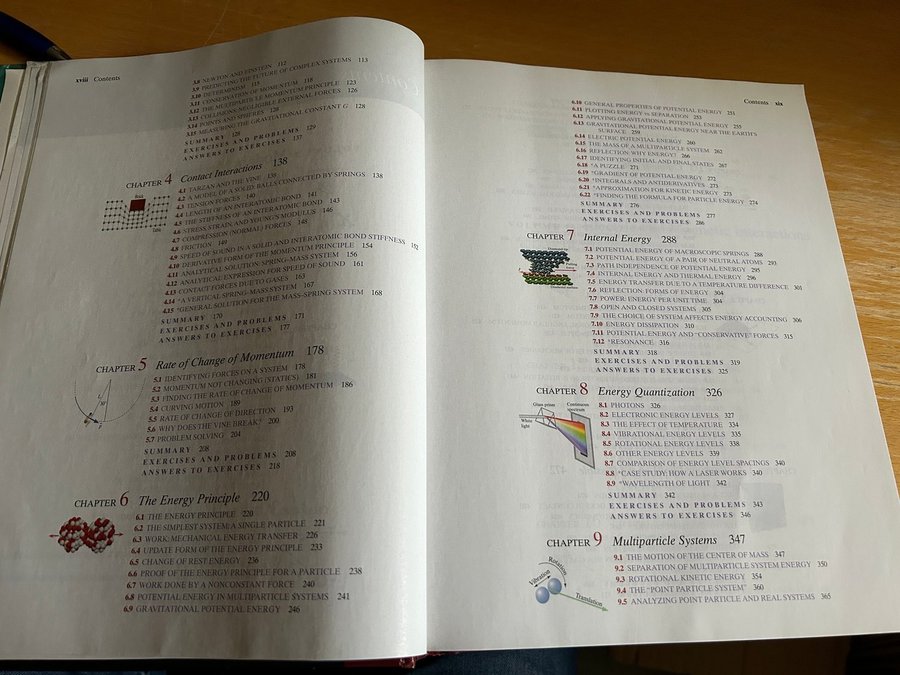 xviii Contents
3.8 NEWTON AND EINSTEIN 112
3.9 PREDICTING THE FUTURE OF COMPLEX SYSTEMS 113
3.10 DETERMINISM
3.11 CONSERVATION OF MOMENTUM 118
3.12 THE MULTIPARTICLE MOMENTUM PRINCIPLE 123
3.13 COLLISIONS: NEGLIGIBLE EXTERNAL FORCES 126
3.14 POINTS AND SPHERES 128
3.15 MEASURING THE GRAVITATIONAL CONSTANT G 128
SUMMARY
EXERCISES AND PROBLEMS 129
ANSWERS TO EXERCISES 137
CHAPTER 4 Contact Interactions 138
4.1 TARZAN AND THE VINE 138
4.2 A MODEL OF A SOLID: BALLS CONNECTED BY SPRINGS 138
4.3 TENSION FORCES 140
4.4 LENGTH OF AN INTERATOMIC BOND 141
4.5 THE STIFFNESS OF AN INTERATOMIC BOND 143
4.6 STRESS, STRAIN, AND YOUNG'S MODULUS 146
4.7 COMPRESSION (NORMAL) FORCES 148
4.8 FRICTION 149
4.9 SPEED OF SOUND IN A SOLID AND INTERATOMIC BOND STIFFNESS 152
4.10 DERIVATIVE FORM OF THE MOMENTUM PRINCIPLE 154
4.11 ANALYTICAL SOLUTION: SPRING–MASS SYSTEM 156
4.12 ANALYTICAL EXPRESSION FOR SPEED OF SOUND 161
4.13 CONTACT FORCES DUE TO GASES 163
4.14 *A VERTICAL SPRING–MASS SYSTEM 167
4.15 *GENERAL SOLUTION FOR THE MASS–SPRING SYSTEM 168
SUMMARY 170
EXERCISES AND PROBLEMS 171
ANSWERS TO EXERCISES 177
CHAPTER 5 Rate of Change of Momentum 178
5.1 IDENTIFYING FORCES ON A SYSTEM 178
5.2 MOMENTUM NOT CHANGING (STATICS) 181
5.3 FINDING THE RATE OF CHANGE OF MOMENTUM 186
5.4 CURVING MOTION 189
5.5 RATE OF CHANGE OF DIRECTION 193
5.6 WHY DOES THE VINE BREAK? 200
5.7 PROBLEM SOLVING 204
SUMMARY 208
EXERCISES AND PROBLEMS 208
ANSWERS TO EXERCISES 218
CHAPTER 6 The Energy Principle 220
6.1 THE ENERGY PRINCIPLE 220
6.2 THE SIMPLEST SYSTEM: A SINGLE PARTICLE 221
6.3 WORK: MECHANICAL ENERGY TRANSFER 226
6.4 UPDATE FORM OF THE ENERGY PRINCIPLE 233
6.5 CHANGE OF REST ENERGY 236
6.6 PROOF OF THE ENERGY PRINCIPLE FOR A PARTICLE 238
6.7 WORK DONE BY A NONCONSTANT FORCE 240
6.8 POTENTIAL ENERGY IN MULTIPARTICLE SYSTEMS 241
6.9 GRAVITATIONAL POTENTIAL ENERGY 246
Contents xix
6.10 GENERAL PROPERTIES OF POTENTIAL ENERGY 251
6.11 PLOTTING ENERGY vs SEPARATION 253
6.12 APPLYING GRAVITATIONAL POTENTIAL ENERGY 255
6.13 GRAVITATIONAL POTENTIAL ENERGY NEAR THE EARTH'S
SURFACE 259
6.14 ELECTRIC POTENTIAL ENERGY 260
6.15 THE MASS OF A MULTIPARTICLE SYSTEM 262
6.16 REFLECTION: WHY ENERGY? 266
6.17 IDENTIFYING INITIAL AND FINAL STATES 267
6.18 *A PUZZLE 271
6.19 *GRADIENT OF POTENTIAL ENERGY 272
6.20 *INTEGRALS AND ANTIDERIVATIVES 273
6.21 *APPROXIMATION FOR KINETIC ENERGY 273
6.22 *FINDING THE FORMULA FOR PARTICLE ENERGY 274
SUMMARY 276
EXERCISES AND PROBLEMS 277
ANSWERS TO EXERCISES 286
CHAPTER 7 Internal Energy 288
7.1 POTENTIAL ENERGY OF MACROSCOPIC SPRINGS 288
7.2 POTENTIAL ENERGY OF A PAIR OF NEUTRAL ATOMS 293
7.3 PATH INDEPENDENCE OF POTENTIAL ENERGY 295
7.4 INTERNAL ENERGY AND THERMAL ENERGY 296
7.5 ENERGY TRANSFER DUE TO A TEMPERATURE DIFFERENCE 301
7.6 REFLECTION: FORMS OF ENERGY 304
7.7 POWER: ENERGY PER UNIT TIME 304
7.8 OPEN AND CLOSED SYSTEMS 305
7.9 THE CHOICE OF SYSTEM AFFECTS ENERGY ACCOUNTING 306
7.10 ENERGY DISSIPATION 310
7.11 POTENTIAL ENERGY AND "CONSERVATIVE" FORCES 315
7.12 *RESONANCE 316
SUMMARY 318
EXERCISES AND PROBLEMS 319
ANSWERS TO EXERCISES 325
CHAPTER 8 Energy Quantization 326
Glass prism
Continuous spectrum
White light
8.1 PHOTONS 326
8.2 ELECTRONIC ENERGY LEVELS 327
8.3 THE EFFECT OF TEMPERATURE 334
8.4 VIBRATIONAL ENERGY LEVELS 335
8.5 ROTATIONAL ENERGY LEVELS 338
8.6 OTHER ENERGY LEVELS 339
8.7 COMPARISON OF ENERGY LEVEL SPACINGS 340
8.8 *CASE STUDY: HOW A LASER WORKS 340
8.9 *WAVELENGTH OF LIGHT 342
SUMMARY 342
EXERCISES AND PROBLEMS 343
ANSWERS TO EXERCISES 346
CHAPTER 9 Multiparticle Systems 347
Rotation
Vibration
Translation
9.1 THE MOTION OF THE CENTER OF MASS 347
9.2 SEPARATION OF MULTIPARTICLE SYSTEM ENERGY 350
9.3 ROTATIONAL KINETIC ENERGY 354
9.4 THE "POINT PARTICLE SYSTEM" 360
9.5 ANALYZING POINT PARTICLE AND REAL SYSTEMS 365